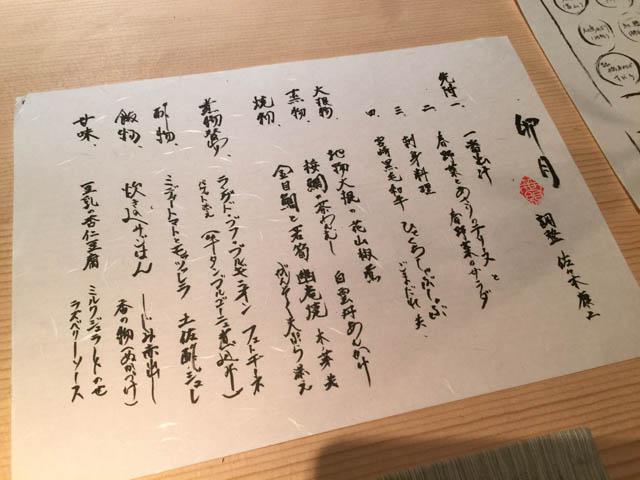 卯月
調整 佐々木
先付 一、一番出汁
二、春野菜とあさりのテリーヌと
春野菜のサラダ
三、刺身料理
四、宮崎黒毛和牛 ひとくちしゃぶしゃぶ
大根物、地物大根の花山椒煮
蒸物、桜鯛の茶わんむし 白雲丹あんかけ
焼物、金目鯛と若筍 幽庵焼 木芽
天ぷら添え
煮物替り、ラングドブフ・ブルギニオン フェットチーネ
(牛タンブルゴーニュ煮込み)
酢物、ミニトマトとモッツァレラ 土佐酢ジュレ
飯物、炊き込ごはん
しじみ赤出し
香の物(ぬかづけ)
甘味、豆乳の杏仁豆腐
ミルクジェラートのせ
ラズベリーソース